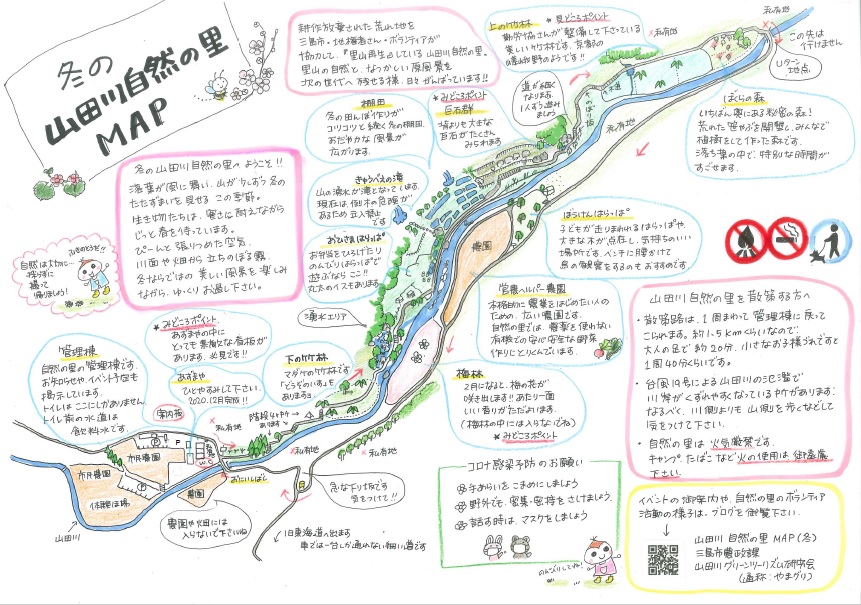 冬の
山田川自然の里
MAP
耕作放棄された荒れ地を
三島市・地権者さん・ボランティアが
協力して『里山再生』している山田川自然の里。
里山の自然と、なつかしい原風景を
次の世代へ残せる様、日々がんばっています!!
冬の山田川自然の里へようこそ!!
落葉が風に舞い、山が少しずつ冬の
たたずまいを見せるこの季節。
生き物たちは、寒さに耐えながら
じっと春を待っています。
ぴーんと張りつめた空気、
川面や畑から立ちのぼる霧、
冬ならではの美しい風景を楽しみ
ながら、ゆっくりお過し下さい。
自然は大切に…
帰りましょう!
棚田
冬の田んぼ作りが
コツコツと続く冬の棚田。
おだやかな風景が
広がります。
★みどころポイント
巨石群
背よりも大きな
巨石がたくさん
みられます
きゅうべえの滝
山の湧水が滝となっています。
現在は、倒木の危険が
あるため立入禁止
です
おひさまはらっぱ
お弁当をひろげたり
のんびりはらっぱで
遊ぶならここ!!
丸太のイスもあります
湧水エリア
上の竹林 ★見どころポイント
美しい竹林です。京都の
嵯峨野のようです!!
道が細く
なります。
1人ずつ進み
ましょう
のぼり坂
水道
×私有地
私有地
この先は
行けません
Uターン
地点
ぼくらの森
いちばん奥にある秘密の森!
荒れた笹やぶを開墾し、みんなで
植樹をして作った森です。
落ち葉の中で、特別な時間が
すごせます。
ぼうけんはらっぱ
子どもが走りまわれるはらっぱや、
大きな木が点在し、気持ちのいい
場所です。ベンチに腰かけて
鳥の観察をするのもおすすめです。
農園
営農ヘルパー農園
本格的に農業をはじめたい人の
ための、広い農園です。
自然の里では、農薬を使わない
有機での安心安全な野菜
作りにとりくんでいます。
梅林
2月になると、梅の花が
咲き出します!!あたり一面
いい香りがただよいます。
(梅林の中には入らないでね)
★みどころポイント
下の竹林
マダケの竹林です
★みどころポイント
あずまやの中に
とっても素敵な看板が
あります。必見です!!
あずまや
ひとやすみして下さい。
(2020.12月完成!!)
管理棟
自然の里の管理棟です。
お知らせや、イベント予定も
掲示しています。
トイレはここにしかありません
トイレ前の水道は
飲料水です。
案内板
階段
あります
×私有地
×私有地
市民農園
市民農園
体験ほ場
農園
山田川
P
WC
農園や畑には
入らないで下さいね
急な下り坂です
気をつけて!!
旧東海道へ出ます
車では一台しか通れない細い道です
コロナ感染予防のお願い
手あらいをこまめにしましょう
野外でも、密集・密接をさけましょう。
話す時は、マスクをしましょう
山田川自然の里を散策する方へ
・散策路は、1周まわって管理棟に戻って
こられます。約1.5kmくらいなので、
大人の足で約20分、小さなお子様づれですと
1周40分くらいです。
・台風19号による山田川の氾濫で
川岸がくずれやすくなっているカ所があります。
なるべく、川側よりも山側を歩くなどして
気をつけて下さい。
・自然の里は火気厳禁です。
キャンプ、たばこなど火の使用は御遠慮
下さい。
イベントの御案内や、自然の里のボランティア
活動の様子は、ブログを御覧下さい。
山田川自然の里MAP(冬)
三島市農政課
山田川グリーンツーリズム研究会
(通称:やまグリ)